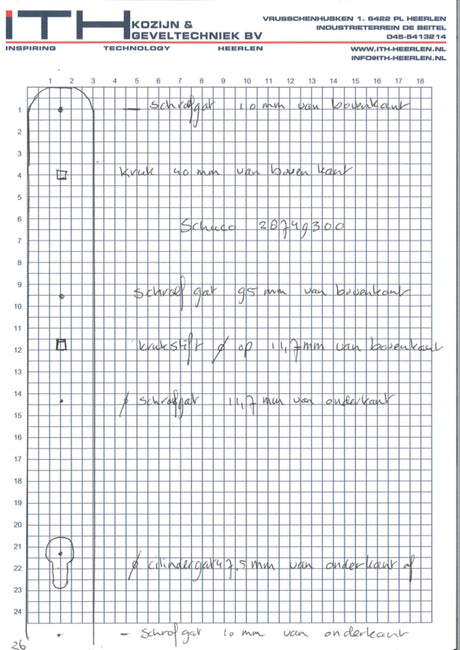 ITH KOZIJN &
GEVELTECHNIEK BV
VRIJSSCHENHUSKEN 1. 6422 PL HEERLEN
INDUSTRIETERREIN DE BEITEL
045-5413214
INSPIRING TECHNOLOGY HEERLEN
WWW.ITH-HEERLEN.NL
INFO@ITH-HEERLEN.NL
1 2 3 4 5 6 7 8 9 10 11 12 13 14 15 16 17 18
1 — schroefgat 10 mm van bovenkant
2
3
4 kruk 40 mm van boven kant
5
6 Schuco 28749300
7
8
9 schroef gat 95 mm van bovenkant
10
11
12 krukstift ∅ op 11,7mm van bovenkant
13
14 ∅ schroefgat 11,7 mm van onderkant
15
16
17
18
19
20
21
22 ∅ cilindergat 47,5 mm van onderkant
23
24
26 — schroefgat 10 mm van onderkant